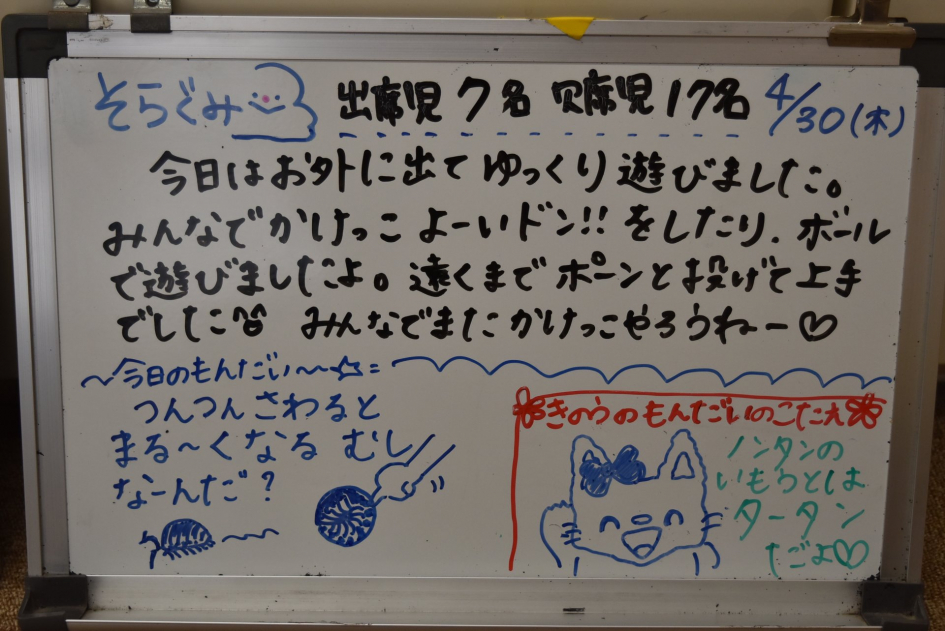 そらぐみ 出席児 7名 欠席児 17名 4/30(木)
今日はお外に出てゆっくり遊びました。
みんなでかけっこよーいドン!!をしたり、ボール
で遊びましたよ。遠くまでポーンと投げて上手
でした みんなでまたかけっこやろうねー♡
～今日のもんだい～☆=
つんつんさわると
まる～くなる むし
なーんだ?
きのうのもんだいのこたえ
ノンタンの
いもうとは
タータン
だよ♡